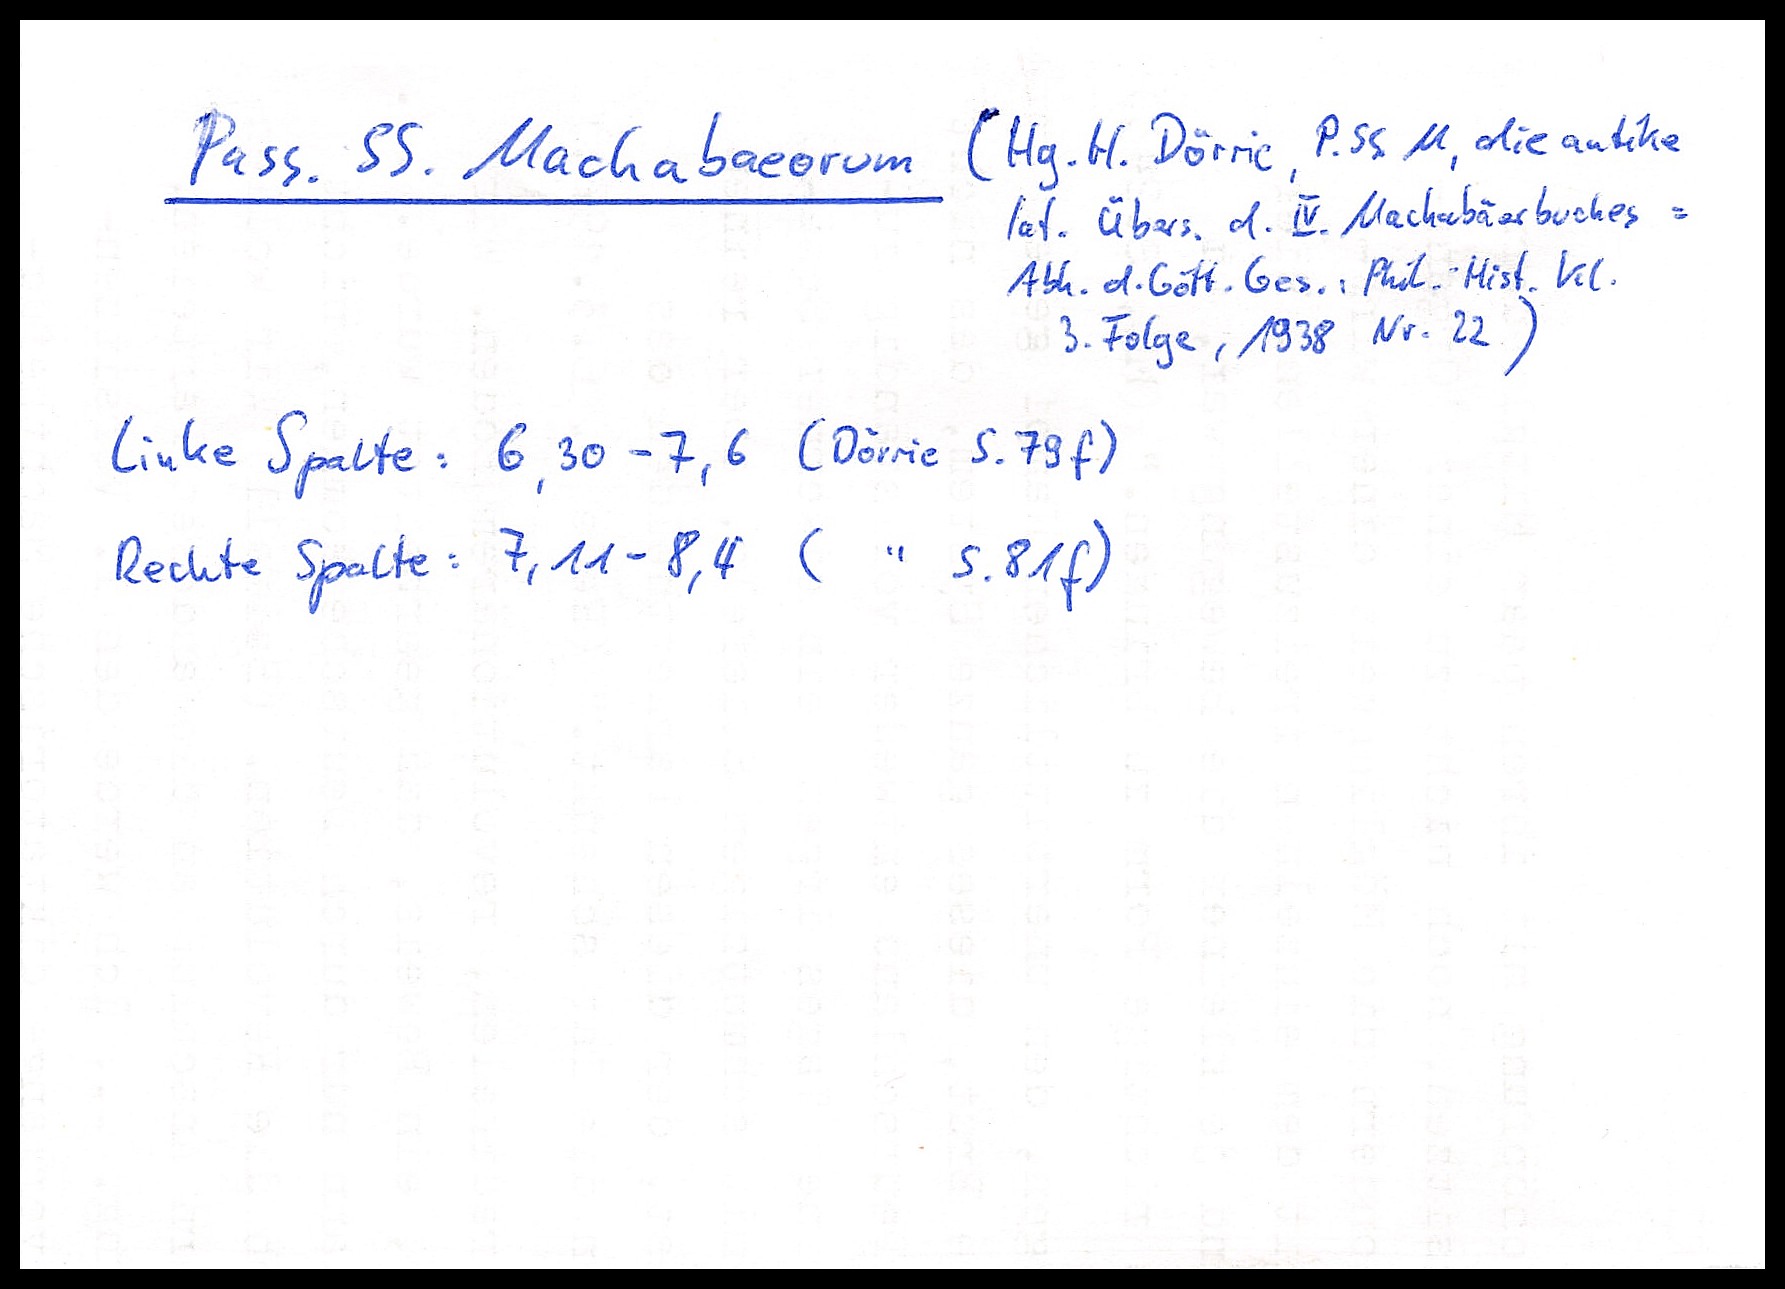 Pass. SS. Machabaeorum (Hg. H. Dörrie, P. SS M, die antike
lat. Übers. d. IV. Machabäerbuches =
Abh. d. Gött. Ges.: Phil.-Hist. Kl.
3. Folge, 1938 Nr. 22)
Linke Spalte: 6,30-7,6 (Dörrie S. 79f)
Rechte Spalte: 7,11-8,4 ( " S. 81f)